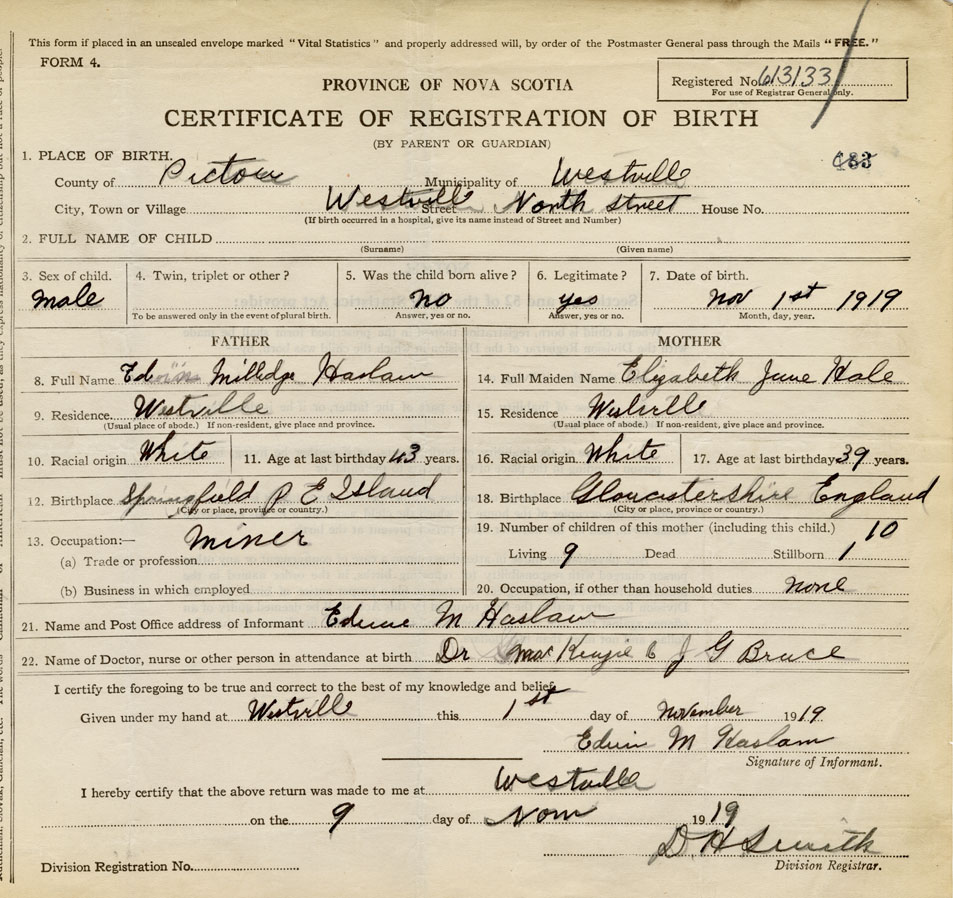 This form if placed in an unsealed envelope marked "Vital Statistics" and properly addressed will, by order of the Postmaster General pass through the Mails "FREE."
FORM 4.
Registered No. 613133
For use of Registrar General only.
PROVINCE OF NOVA SCOTIA
CERTIFICATE OF REGISTRATION OF BIRTH
(BY PARENT OR GUARDIAN)
1. PLACE OF BIRTH.
County of Pictou Municipality of Westville
City, Town or Village Westville Street North Street House No.
(If birth occurred in a hospital, give its name instead of Street and Number)
2. FULL NAME OF CHILD
(Surname) (Given name)
3. Sex of child. 4. Twin, triplet or other? 5. Was the child born alive? 6. Legitimate? 7. Date of birth.
male no yes Nov 1st 1919
To be answered only in the event of plural birth. Answer, yes or no. Answer, yes or no. Month, day, year.
FATHER MOTHER
8. Full Name Edwin Milledge Haslam 14. Full Maiden Name Elizabeth Jane Hale
9. Residence. Westville 15. Residence Westville
(Usual place of abode.) If non-resident, give place and province. (Usual place of abode.) If non-resident, give place and province.
10. Racial origin White 11. Age at last birthday 43 years. 16. Racial origin White 17. Age at last birthday 39 years.
12. Birthplace Springfield P E Island 18. Birthplace Gloucestershire England
(City or place, province or country.) (City or place, province or country.)
13. Occupation:— miner 19. Number of children of this mother (including this child.) 10
(a) Trade or profession Living 9 Dead Stillborn 1
(b) Business in which employed 20. Occupation, if other than household duties none
21. Name and Post Office address of Informant Edwin M Haslam
22. Name of Doctor, nurse or other person in attendance at birth Dr J G Bruce
I certify the foregoing to be true and correct to the best of my knowledge and belief.
Given under my hand at Westville this 1st day of November 1919
Edwin M Haslam
Signature of Informant.
I hereby certify that the above return was made to me at Westville
on the 9 day of Nov 1919
D. H Smith
Division Registration No. Division Registrar.